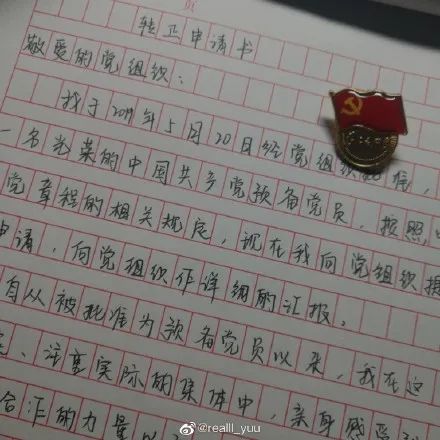 转正申请书
敬爱的党组织:
我于2019年5月20日经党组织批准,
一名光荣的中国共产党预备党员,按照
党章程的相关规定,现在我向党组织提
申请,向党组织作详细的汇报。
自从被批准为预备党员以来,我在这
注重实际的集体中,亲身感受
合作的力量以
@realll_yuu